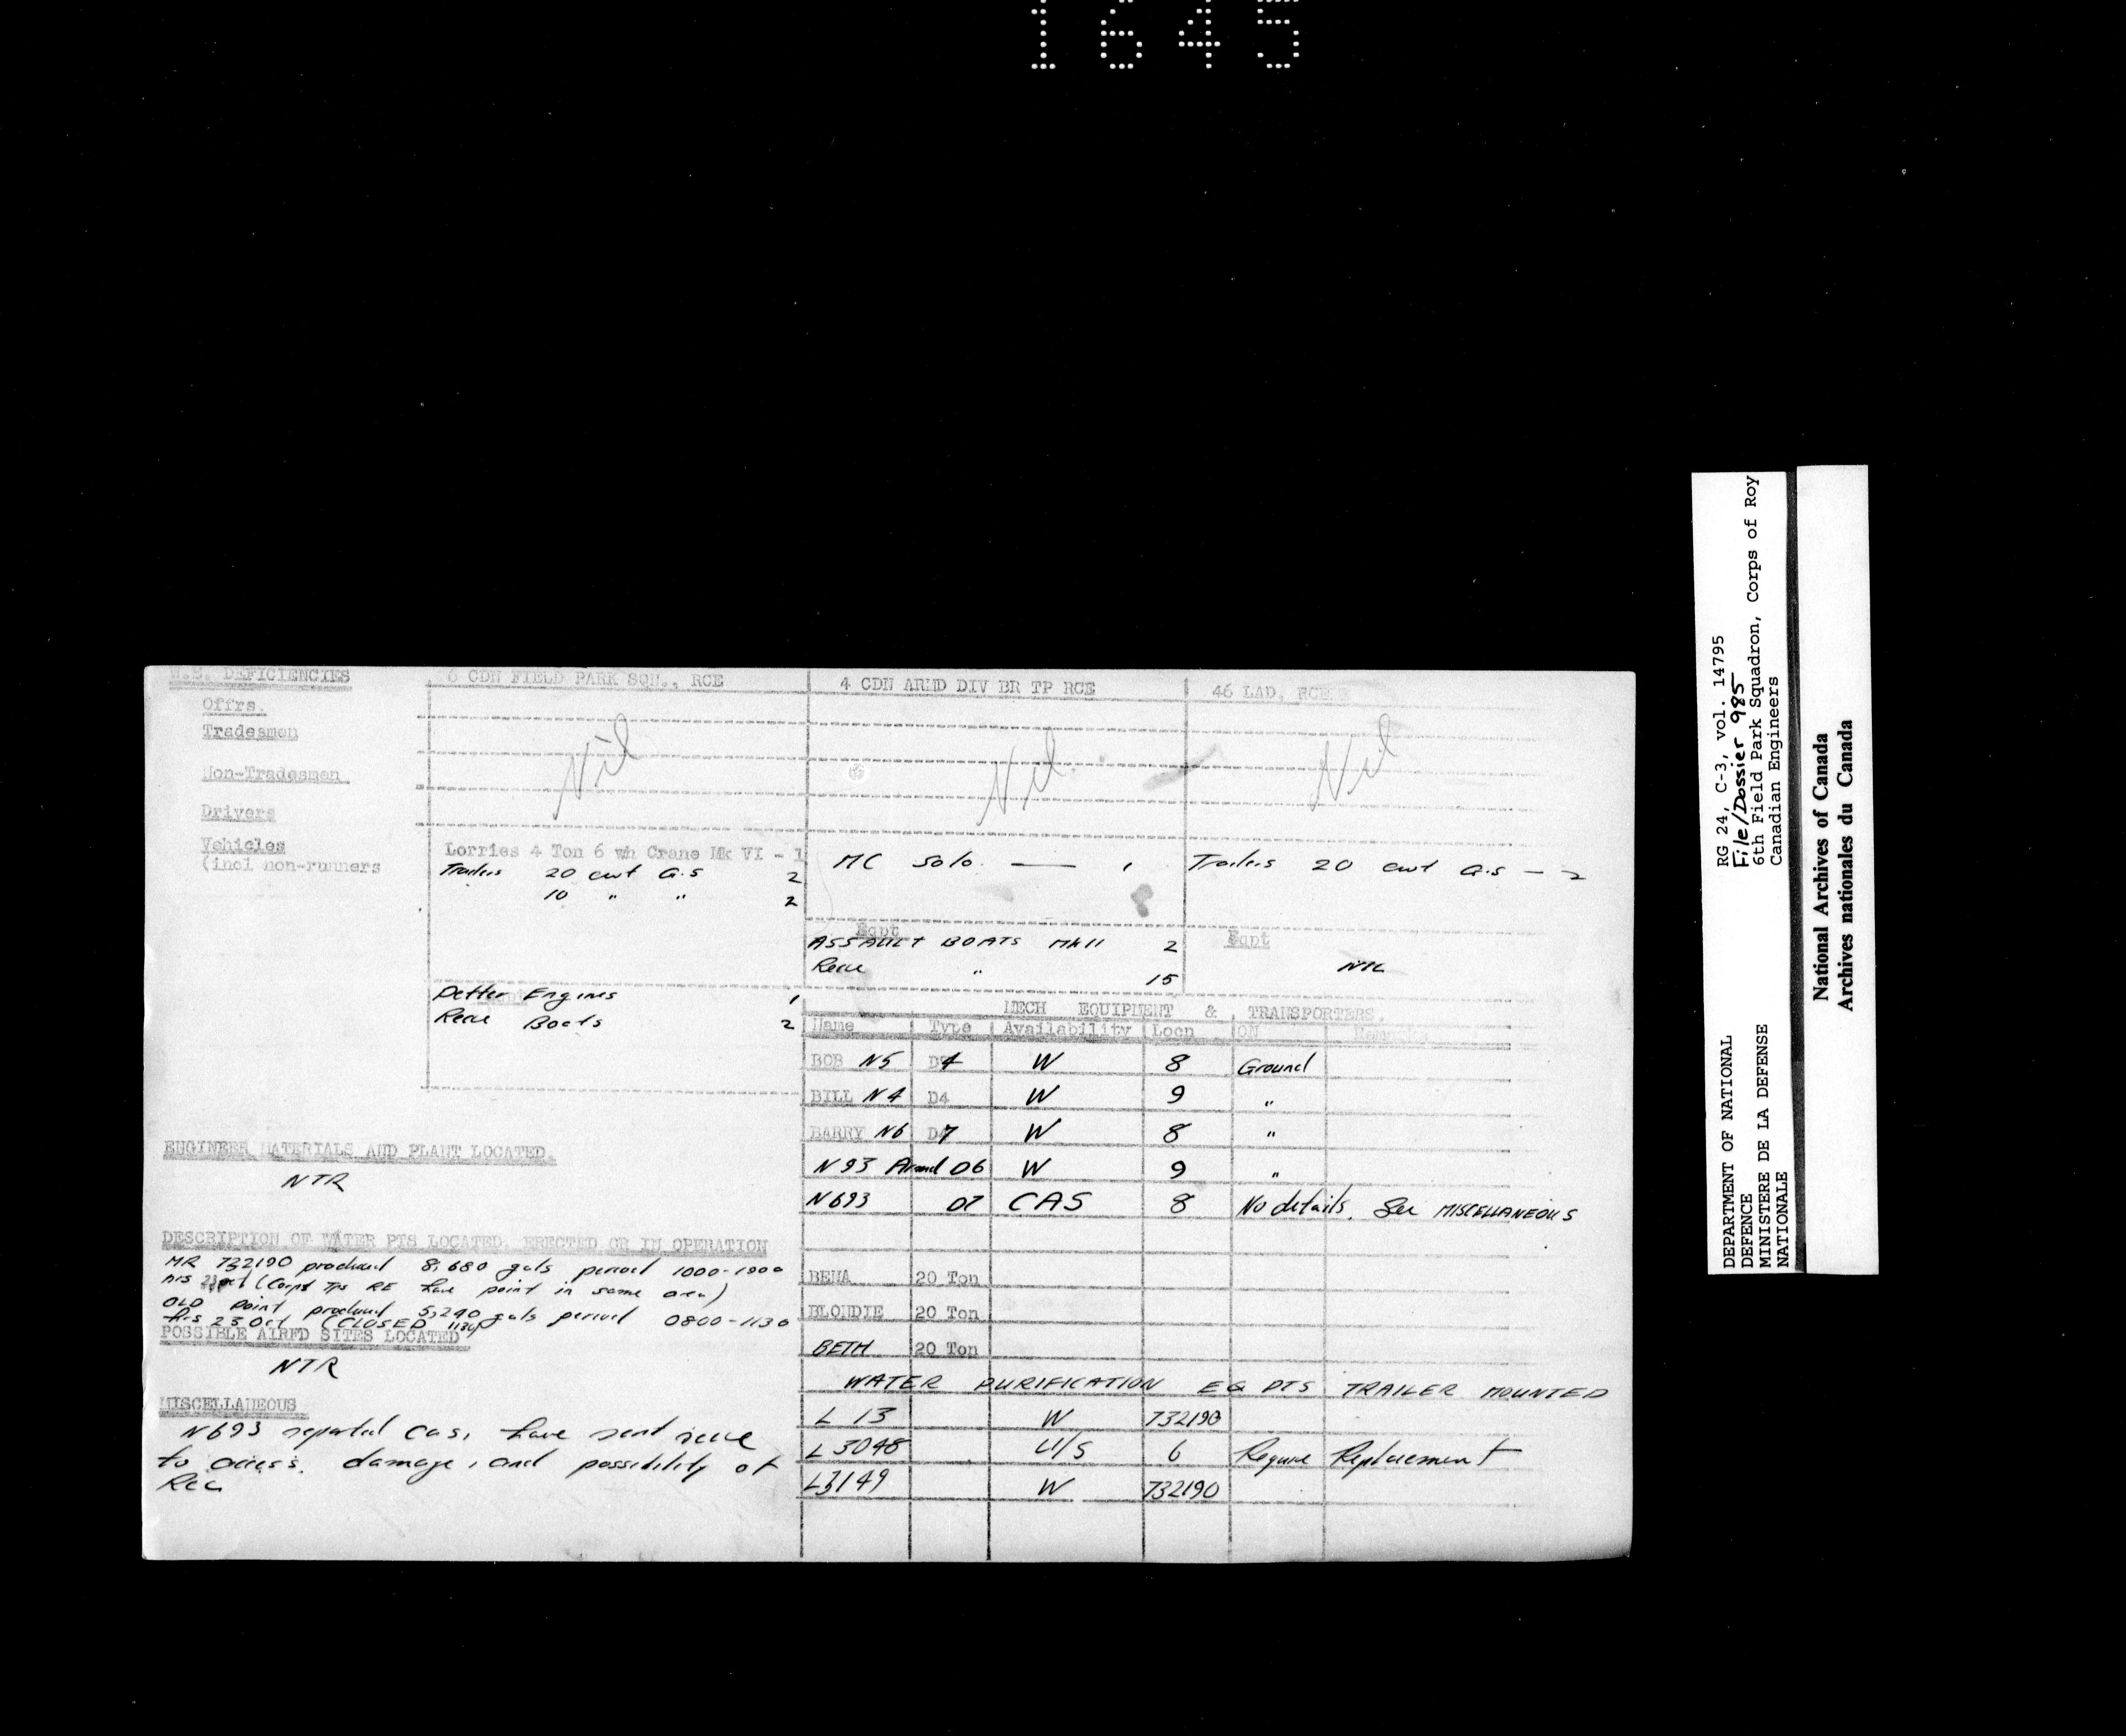 1645
W.E. DEFICIENCIES
6 CDN FIELD PARK SQN., RCE
4 CDN ARMD DIV BR TP RCE
46 LAD, RCEME
Offrs.
Tradesmen
Non-Tradesmen
Drivers
Nil
Nil
Nil
Vehicles
(incl non-runners
Lorries 4 Ton 6 wh Crane Mk VI - 1
Trailers 20 cwt G.S 2
10 " " 2
MC Solo — 1
Trailers 20 cwt G.S — 2
Eqpt
ASSAULT BOATS MkII 2
Recce " 15
Eqpt
NIL
Petter Engines 1
Recce Boats 2
MECH EQUIPMENT & TRANSPORTERS.
Name Type Availability Locn ON Remarks
BOB N5 D4 W 8 Ground
BILL N4 D4 W 9 "
BARRY N6 D7 W 8 "
N93 Armd D6 W 9 "
N693 D7 CAS 8 No details. See MISCELLANEOUS
BENA 20 Ton
BLONDIE 20 Ton
BETH 20 Ton
WATER PURIFICATION EQPTS TRAILER MOUNTED
L 13 W 732190
L 3048 U/S 6 Require Replacement
L3149 W 732190
ENGINEER MATERIALS AND PLANT LOCATED.
NTR
DESCRIPTION OF WATER PTS LOCATED, ERECTED OR IN OPERATION
MR 732190 produced 8,680 gals period 1000-1900
hrs 23 Oct (Corps Tps RE have point in same area)
OLD point produced 5,240 gals period 0800-1130
hrs 23 Oct (CLOSED 1130)
POSSIBLE AIRFD SITES LOCATED
NTR
MISCELLANEOUS
N693 reported Cas, have sent recce
to assess damage, and possibility of
Rec
RG 24, C-3, vol. 14795
File/Dossier 985
6th Field Park Squadron, Corps of Roy
Canadian Engineers
DEPARTMENT OF NATIONAL
DEFENCE
MINISTERE DE LA DEFENSE
NATIONALE
National Archives of Canada
Archives nationales du Canada